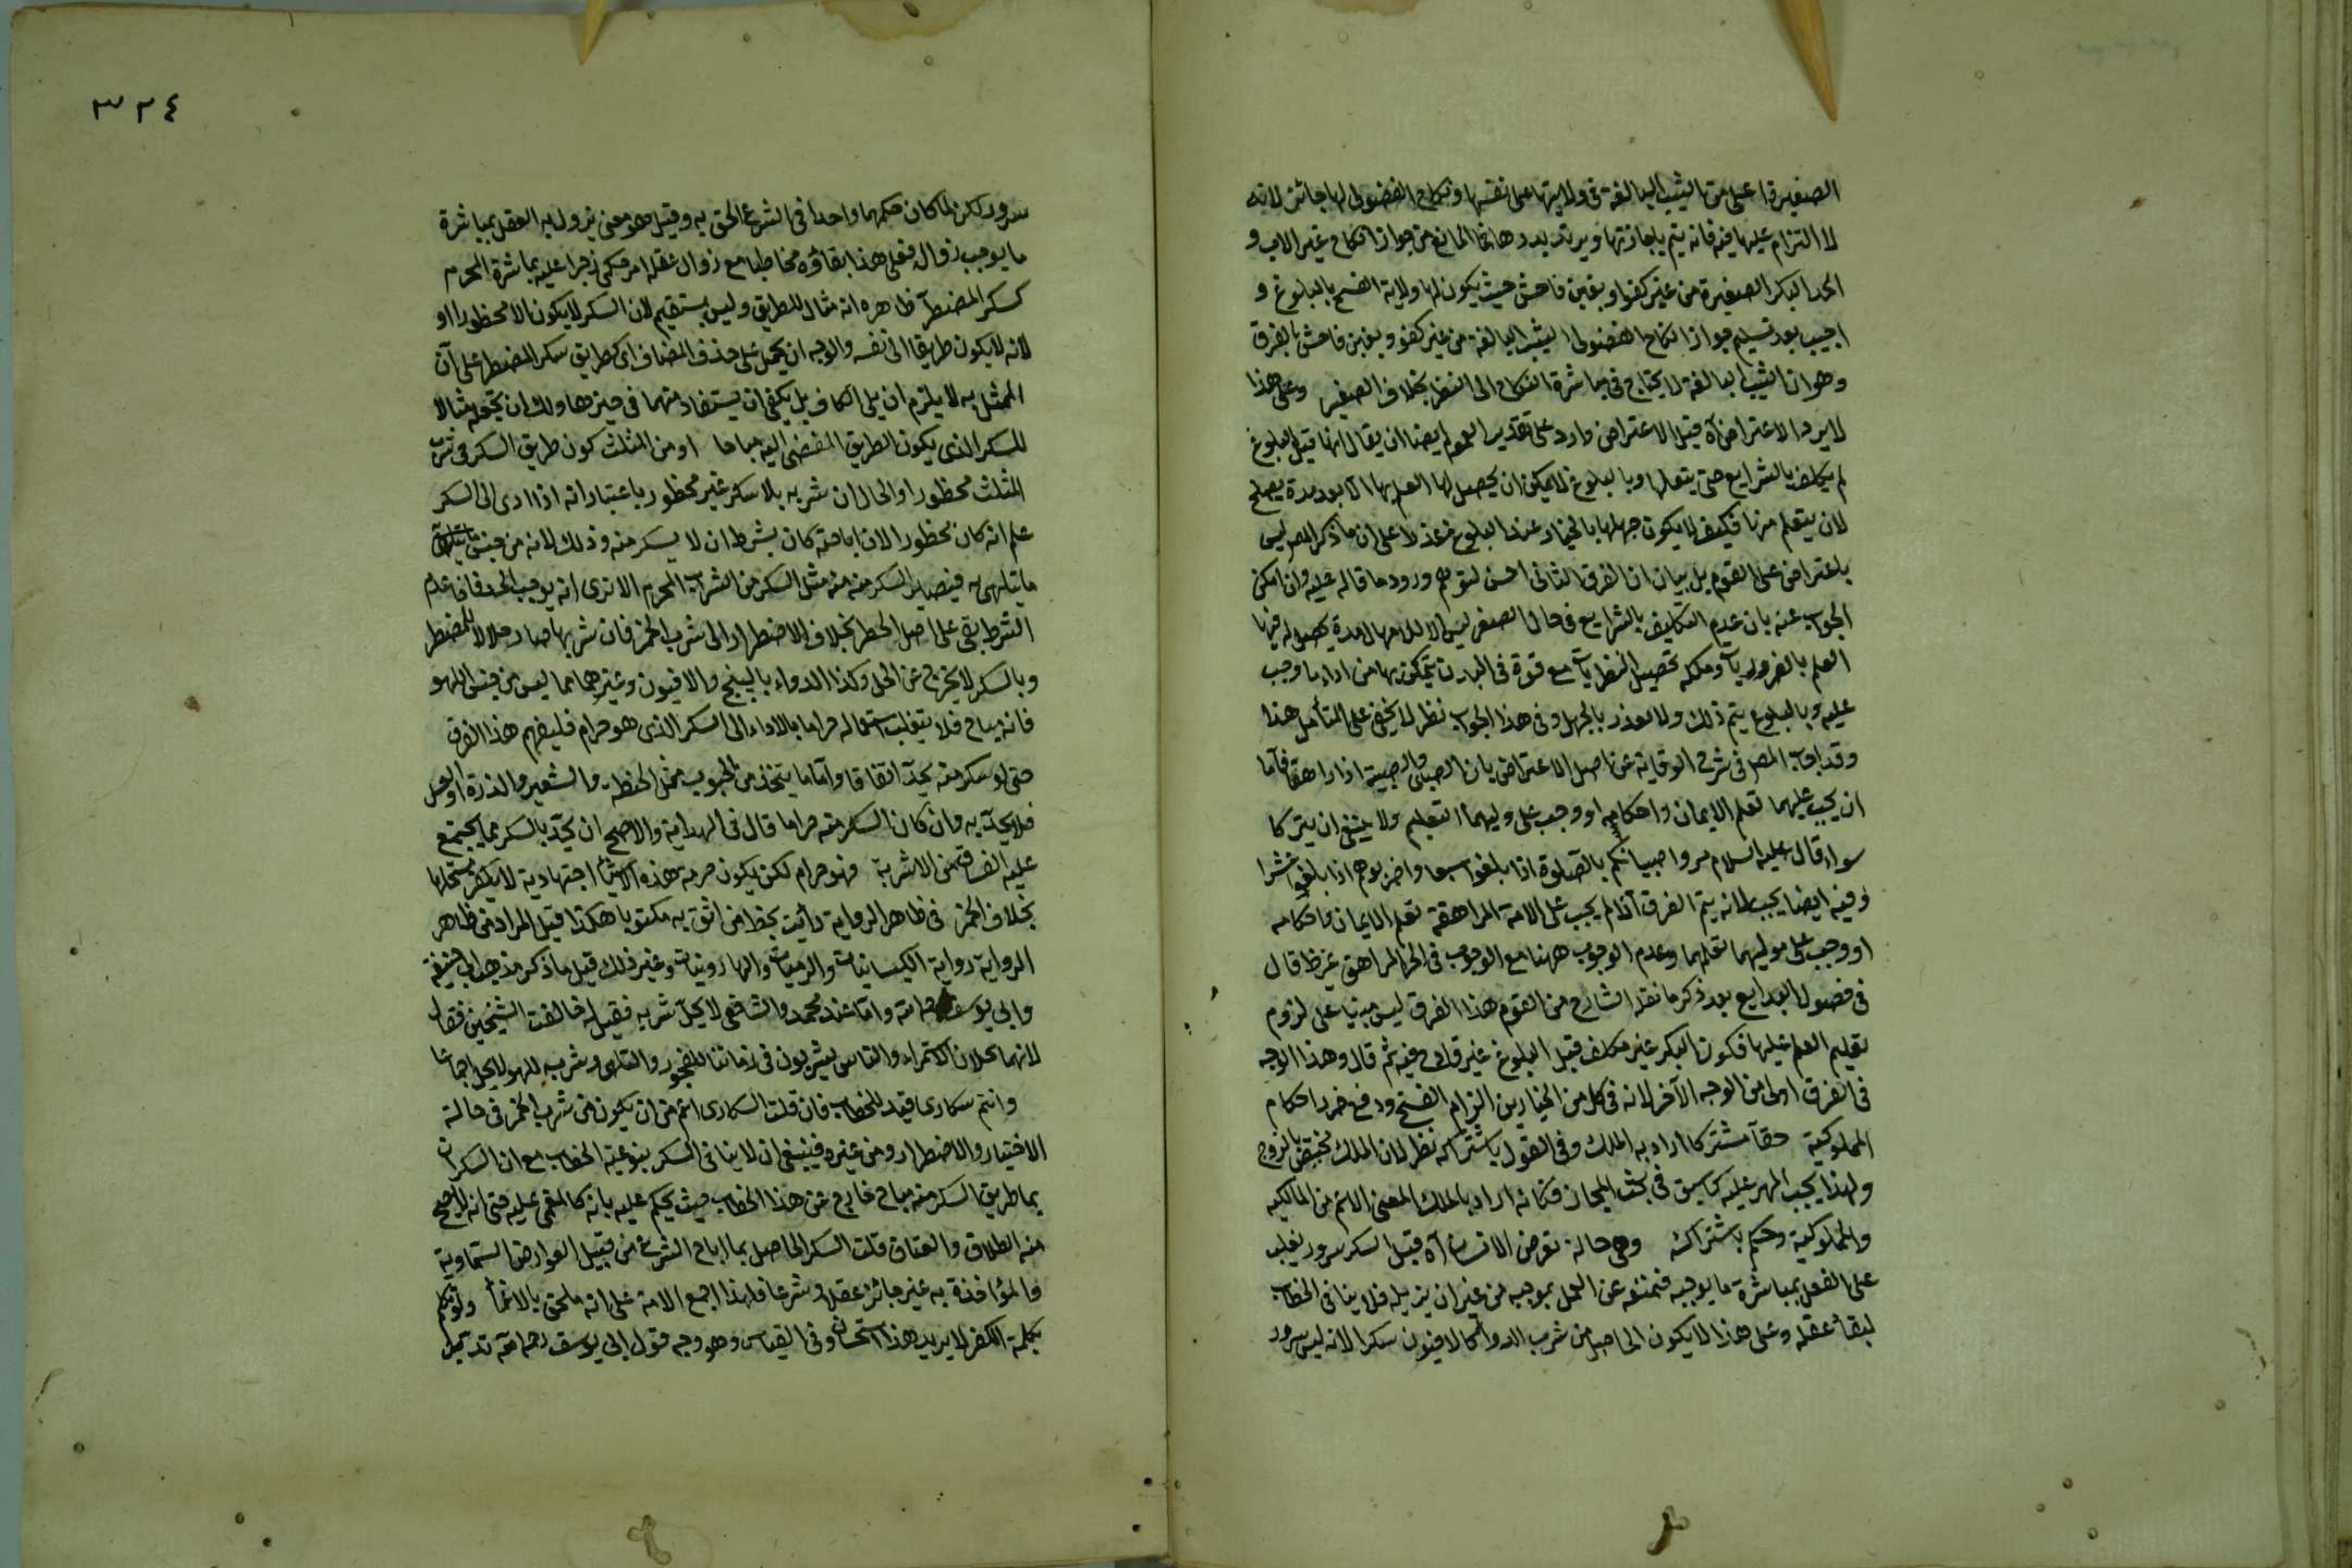 الصغيرة اعلى من الثيب البالغة فى ولايتها على نفسها ونكاح الفضولى لها جائز لانه
لا التزام عليها فيه فانه يتم باجازتها ويرتد بردها فما المانع من جواز انكاح غير الاب و
الجد البكر الصغيرة من غير كفو او بغبن فاحش حيث يكون لها ولاية الفسخ بالبلوغ و
اجيب بعد تسليم جواز انكاح الفضولى الثيب البالغة من غير كفو وبغبن فاحش بالفرق
وهو ان الثيب البالغة لا يحتاج فى مباشرة النكاح الى النظر بخلاف الصغير وعلى هذا
لا يرد الاعتراض آه قيل الاعتراض وارد على تقدير العموم ايضا ان يقال انها قبل البلوغ
لم يكلف بالشرايع حتى يتعلمها وبالبلوغ لا يمكن ان يحصل لها العلم بها الا بعد مدة يصلح
لان يتعلم منها فكيف لا يكون جهلها بالخيار عند البلوغ عذرا على ان ما ذكر المص ليس
باعتراض على القوم بل بيان ان الفرق الثانى احسن لتوهم ورود ما قاله عليه وان امكن
الجواب عنه بان عدم التكليف بالشرايع فى حال الصغر ليس الا للامهال لمدة يحصل له فيها
العلم بالضروريات وملكه تحصيل النظريات مع قوة فى البدن يتمكن بها من اداء ما وجب
عليه وبالبلوغ يتم ذلك ولا يعذر بالجهل وفى هذا الجواب نظر لا يخفى على المتأمل هذا
وقد اجاب المص فى شرح الوقاية عن اصل الاعتراض بان الصبى والصبية اذا راهقا فاما
ان يجب عليهما تعلم الايمان واحكامه او وجب على وليهما التعليم ولا ينبغى ان يتركا
سدى قال عليه السلام مروا صبيانكم بالصلوة اذا بلغوا سبعا واضربوهم اذا بلغوا عشرا
وفيه ايضا بحث لانه يتم الفرق اذا لم يجب على الامة المراهقة تعلم الايمان واحكامه
او وجب على موليهما تعليمهما وعدم الوجوب ههنا مع الوجوب فى الحر المراهق غير ظ قال
فى فصول البدايع بعد ذكر ما نقله الشارح من القوم هذا الفرق ليس مبنيا على لزوم
تعليم العلم عليها فكون البكر غير مكلف قبل البلوغ غير قادح فيه ثم قال وهذا الوجه
فى الفرق اولى من الوجه الآخر لانه فى كل من الخيارين الزام الفسخ ودفع ضرر احكام
المملوكية حقا مشتركا اراد به الملك وفى القول باشتراكه نظر لان الملك مختص بالزوج
ولهذا يجب المهر عليه كما سبق فى بحث المجاز فكانه اراد بالملك المعنى الاعم من المالكيه
والمملوكية وحكم باشتراكه وهى حالة تعرض الانسان آه قيل السكر سرور يغلب
على العقل بمباشرة ما يوجبه فيمتنعه عن العمل بموجبه من غير ان يزيله فلا ينافى الخطاب
لبقاء عقله وعلى هذا لا يكون الحاصل من شرب الدواء كالافيون سكرا لانه ليس بسرور
٣٢٤
سرور لكن لما كان حكمهما واحدا فى الشرع الحق به وقيل هو معنى يزول به العقل بمباشرة
ما يوجب زواله فعلى هذا بقاؤه مخاطبا مع زوال عقله امر حكمى زجرا عليه بمباشرة المحرم
كسكر المضطر آه ظاهره انه مثال للطريق وليس يستقيم لان السكر لا يكون الا محظورا او
لانه لا يكون طريقا الى نفسه والوجه ان يحمل على حذف المضاف اى كطريق سكر المضطر على ان
الممثل به لا يلزم ان يلى الكاف بل يكفى ان يستفاد منهما فى حيزها ولك ان تجعله مثالا
للسكر الذى يكون الطريق المفضى اليه مباحا او من المثلث كون طريق السكر فى شرب
المثلث محظورا والحال ان شربه بلا سكر غير محظور باعتبار انه اذا ادى الى السكر
علم انه كان محظورا لان اباحته كان بشرط ان لا يسكر منه وذلك لانه من جنس
ما يتلهى به فيصير السكر منه مثل السكر من الشراب المحرم الا ترى انه يوجب الحد فاذا عدم
الشرط بقى على اصل الحظر بخلاف الاضطرار الى شرب الخمر فان شربها صار حلالا للمضطر
وبالسكر لا يخرج عن الحل وكذا الدواء بالبنج والافيون وغيرهما مما ليس من جنس اللهو
فانه مباح فلا ينقلب استعماله حراما بالاداء الى السكر الذى هو حرام فليفهم هذا الفرق
حتى لو سكر منه يحد اتفاقا واما ما يتخذ من الحبوب مثل الحنطه والشعير والذرة او العسل
فلا يحد به وان كان السكر منه حراما قال فى الهداية والاصح ان يحد بالسكر مما يجتمع
عليه الفساق من الاشربة فهو حرام لكن يكون حرمة هذه الاشياء اجتهادية لا يكفر مستحلها
بخلاف الخمر فى ظاهر الرواية رأيت بخط من اثق به مكتوبا هكذا قيل المراد من ظاهر
الرواية رواية الكيسانيات والرقيات والهارونيات وغير ذلك قيل ما ذكر مذهب ابى حنيفة
وابى يوسف رحمه الله واما عند محمد والشافعى لا يحل شربه فقيل له خالفت الشيخين فقال
لانهما يحلان لاستمراء والناس يشربون فى زماننا للفجور والتلهى وشربه للهو لا يحل اجماعا
وانتم سكارى قيد للخطاب فان قلت السكارى اعم من ان يكون من شرب الخمر فى حالة
الاختيار والاضطرار ومن غيره فينبغى ان لا ينافى السكر بنوعيه الخطاب مع ان السكران
بما طريق السكر منه مباح خارج عن هذا الخطاب حيث يحكم عليه بانه كالمغمى عليه حتى انه لا يصح
منه الطلاق والعتاق قلت السكر الحاصل بما اباح الشرع من قبيل العوارض السماوية
والمؤاخذة به غير جائز عقلا وشرعا فلهذا اجمع الامة على انه ملحق بالاغماء ولو تكلم
بكلمة الكفر لا يرتد هذا استحسان وفى القياس وهو وجه قول ابى يوسف رحمه الله ترتد قيل